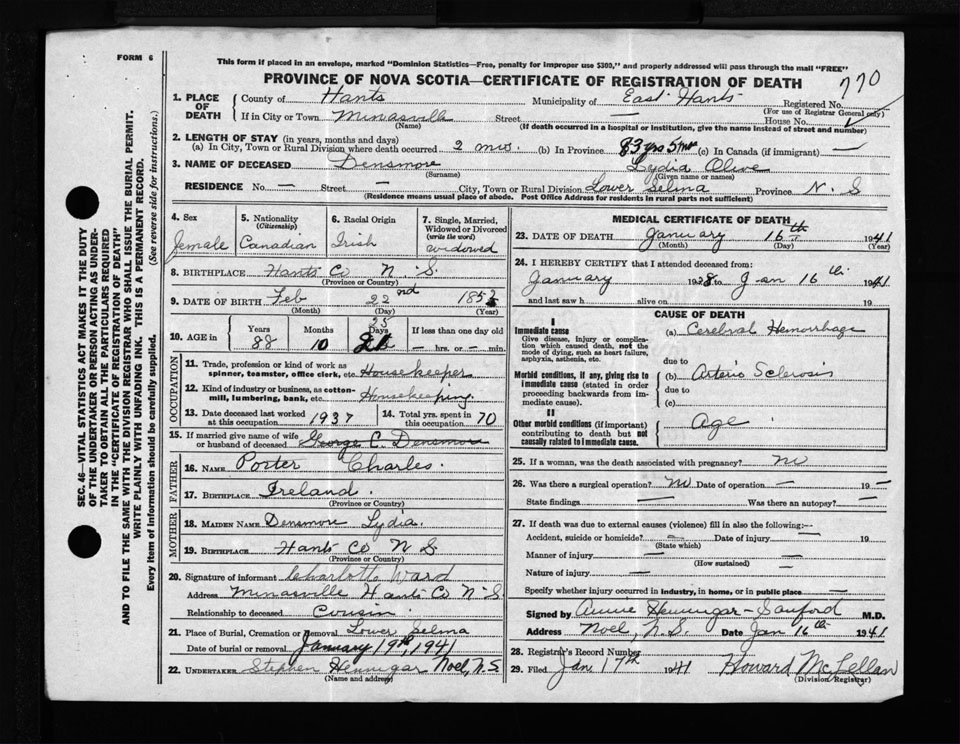 FORM 6
This form if placed in an envelope, marked "Dominion Statistics—Free, penalty for improper use $300," and properly addressed will pass through the mail "FREE"
PROVINCE OF NOVA SCOTIA—CERTIFICATE OF REGISTRATION OF DEATH
770
1. PLACE OF DEATH
County of Hants Municipality of East Hants Registered No.
(For use of Registrar General only)
If in City or Town Minasville Street — House No.
(Name) (If death occurred in a hospital or institution, give the name instead of street and number)
2. LENGTH OF STAY (in years, months and days)
(a) In City, Town or Rural Division where death occurred 2 mos. (b) In Province 83 yrs 5 mo (c) In Canada (if immigrant) —
3. NAME OF DECEASED Densmore Lydia Olive
(Surname) (Given name or names)
RESIDENCE No. — Street — City, Town or Rural Division Lower Selma Province N. S
(Residence means usual place of abode. Post Office Address for residents in rural parts not sufficient)
4. Sex
female
5. Nationality
(Citizenship)
Canadian
6. Racial Origin
Irish
7. Single, Married, Widowed or Divorced
(write the word)
widowed
8. BIRTHPLACE Hants Co N. S.
(Province or Country)
9. DATE OF BIRTH Feb 22nd 185
(Month) (Day) (Year)
10. AGE in
Years Months Days If less than one day old
88 10 25 — hrs. or — min.
OCCUPATION
11. Trade, profession or kind of work as spinner, teamster, office clerk, etc. Housekeeper
12. Kind of industry or business, as cotton-mill, lumbering, bank, etc. Housekeeping.
13. Date deceased last worked at this occupation 1937
14. Total yrs. spent in this occupation 70
15. If married give name of wife or husband of deceased George C. Densmore
FATHER
16. NAME Porter Charles.
17. BIRTHPLACE Ireland.
(Province or Country)
MOTHER
18. MAIDEN NAME Densmore Lydia.
19. BIRTHPLACE Hants Co N S.
(Province or Country)
20. Signature of informant Charlotte Ward
Address Minasville Hants Co N. S.
Relationship to deceased Cousin.
21. Place of Burial, Cremation or Removal Lower Selma
Date of burial or removal January 19th, 1941
22. UNDERTAKER Stephen Hennigar Noel, N.S.
(Name and address)
MEDICAL CERTIFICATE OF DEATH
23. DATE OF DEATH January 16th 1941
(Month) (Day) (Year)
24. I HEREBY CERTIFY that I attended deceased from:
January 1938 to Jan 16th 1941
and last saw h alive on 19
CAUSE OF DEATH
I
Immediate cause
Give disease, injury or complication which caused death, not the mode of dying, such as heart failure, asphyxia, asthenia, etc.
(a) Cerebral Hemorrhage
due to
Morbid conditions, if any, giving rise to immediate cause (stated in order proceeding backwards from immediate cause).
(b) Arterio Sclerosis
due to
(c)
II
Other morbid conditions (if important) contributing to death but not causally related to immediate cause.
Age
25. If a woman, was the death associated with pregnancy? No
26. Was there a surgical operation? No Date of operation — 19 —
State findings — Was there an autopsy? —
27. If death was due to external causes (violence) fill in also the following:—
Accident, suicide or homicide? — Date of injury — 19
(State which)
Manner of injury — —
(How sustained)
Nature of injury — —
Specify whether injury occurred in industry, in home, or in public place —
Signed by Annie Hennigar-Sanford M.D.
Address Noel, N.S. Date Jan 16th 1941
28. Registrar's Record Number
29. Filed Jan 17th 1941 Howard McLellan
(Division Registrar)
SEC. 46—VITAL STATISTICS ACT MAKES IT THE DUTY
OF THE UNDERTAKER OR PERSON ACTING AS UNDER-
TAKER TO OBTAIN ALL THE PARTICULARS REQUIRED
IN THE "CERTIFICATE OF REGISTRATION OF DEATH"
AND TO FILE THE SAME WITH THE DIVISION REGISTRAR WHO SHALL ISSUE THE BURIAL PERMIT.
WRITE PLAINLY WITH UNFADING INK. THIS IS A PERMANENT RECORD.
Every item of information should be carefully supplied. (See reverse side for instructions.)